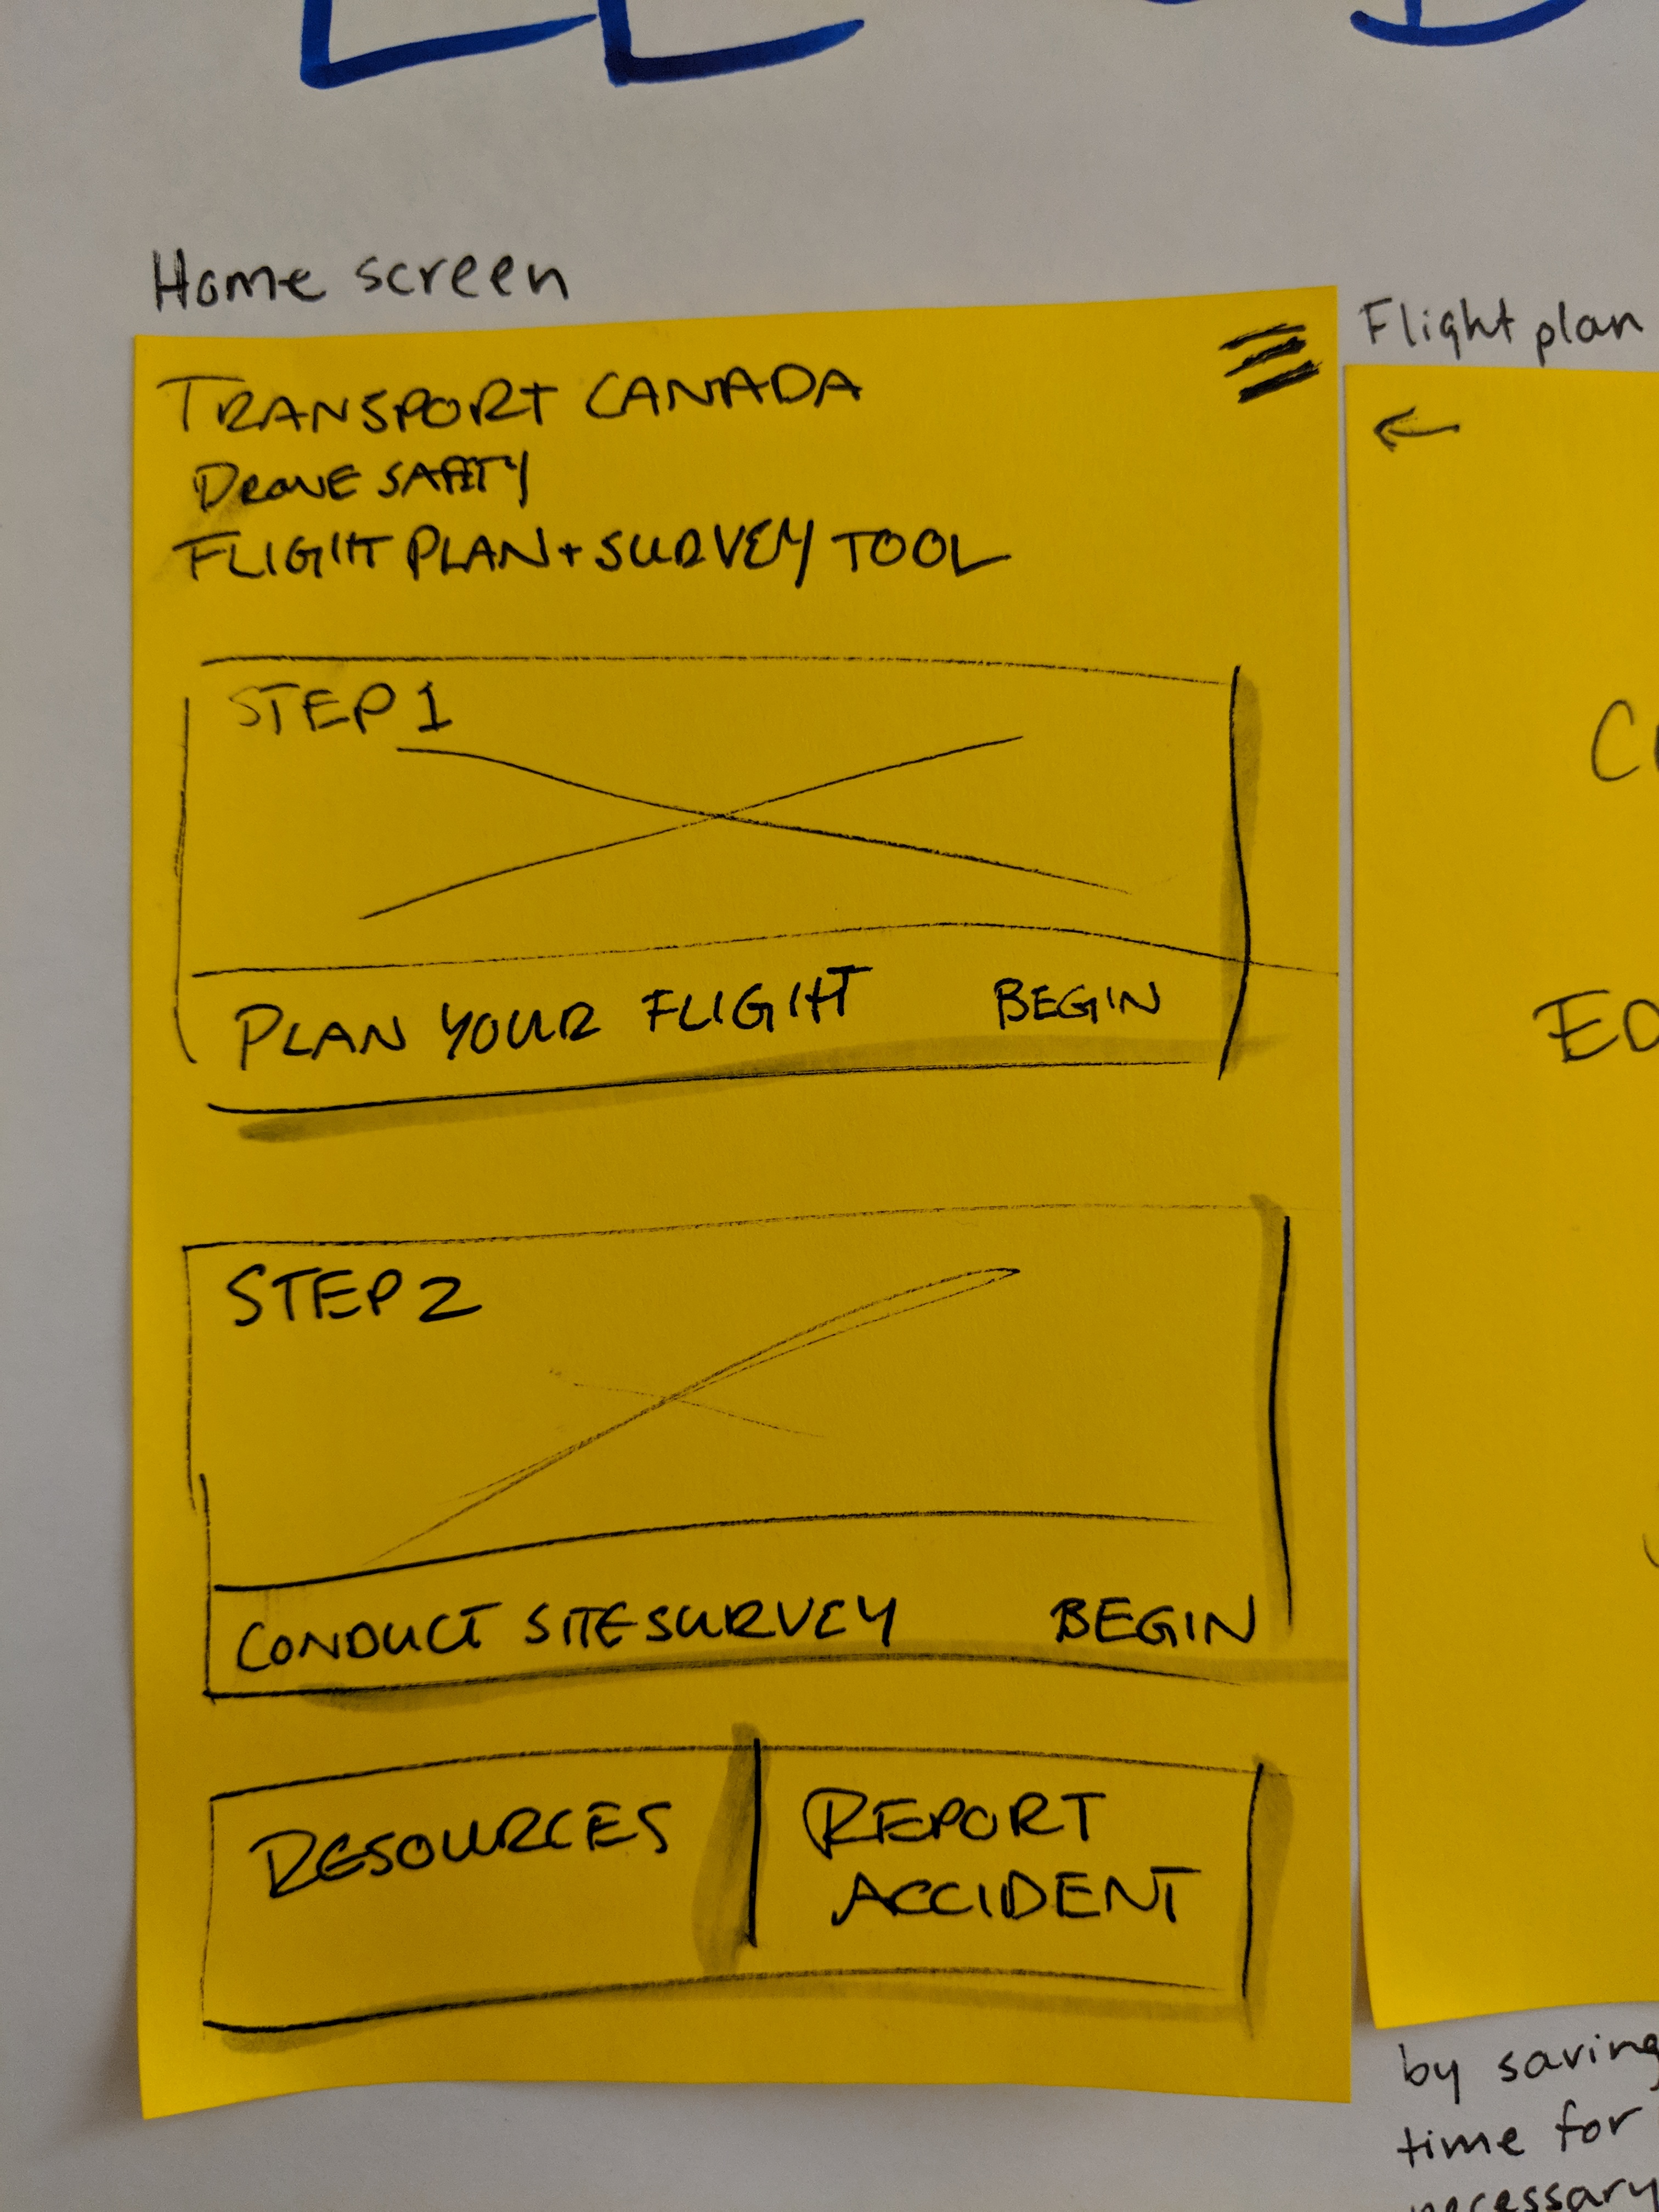 Home screen
TRANSPORT CANADA
DRONE SAFETY
FLIGHT PLAN + SURVEY TOOL
STEP 1
PLAN YOUR FLIGHT BEGIN
STEP 2
CONDUCT SITE SURVEY BEGIN
RESOURCES
REPORT
ACCIDENT
Flight plan
by saving
time for
necessary